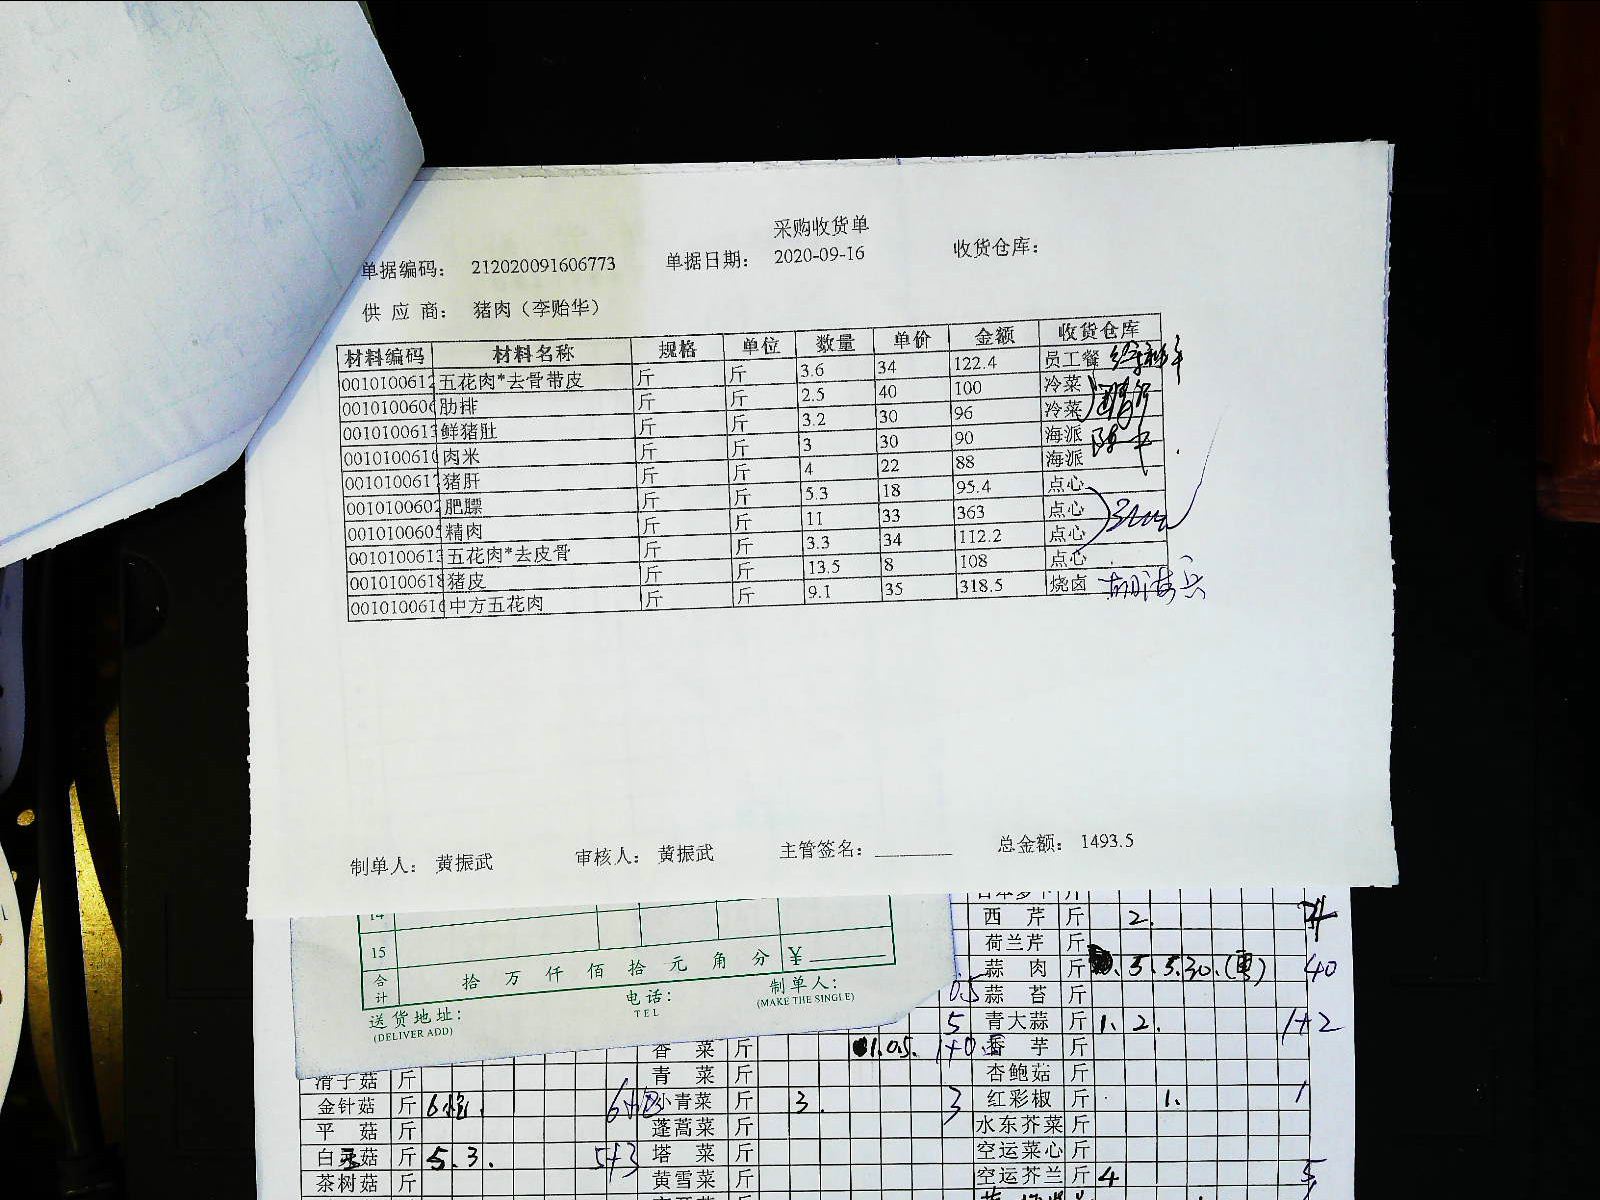 采购收货单
单据编码： 212020091606773 单据日期： 2020-09-16 收货仓库：
供 应 商： 猪肉（李贻华）
材料编码 材料名称 规格 单位 数量 单价 金额 收货仓库
001010061 五花肉*去骨带皮 斤 斤 3.6 34 122.4 员工餐
001010060 肋排 斤 斤 2.5 40 100 冷菜
001010061 鲜猪肚 斤 斤 3.2 30 96 冷菜
001010061 肉米 斤 斤 3 30 90 海派
001010061 猪肝 斤 斤 4 22 88 海派
001010060 肥膘 斤 斤 5.3 18 95.4 点心
001010060 精肉 斤 斤 11 33 363 点心
001010061 五花肉*去皮骨 斤 斤 3.3 34 112.2 点心
001010061 猪皮 斤 斤 13.5 8 108 点心
001010061 中方五花肉 斤 斤 9.1 35 318.5 烧卤
制单人： 黄振武 审核人： 黄振武 主管签名： 总金额： 1493.5
14
15
合计 拾 万 仟 佰 拾 元 角 分 ￥
送货地址：
(DELIVER ADD)
电话：
TEL
制单人：
(MAKE THE SINGLE)
西 芹 斤 2.
荷兰芹 斤
蒜 肉 斤 5. 5.30. 40
0.5 蒜 苔 斤
5 青大蒜 斤 1. 2. 1+2
香 菜 斤 1.0.5. 香 芋 斤
滑子菇 斤 青 菜 斤 杏鲍菇 斤
金针菇 斤 小青菜 斤 3. 3 红彩椒 斤 1. 1
平 菇 斤 蓬蒿菜 斤 水东芥菜 斤
白 菇 斤 5. 3. 5+3 塔 菜 斤 空运菜心 斤
茶树菇 斤 黄雪菜 斤 空运芥兰 斤 4 5